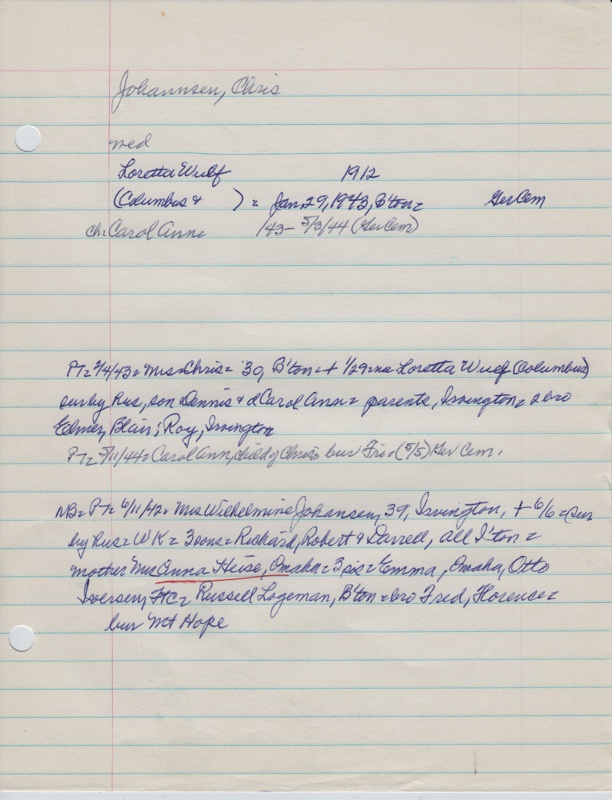 Johannsen, Chris
med
Loretta Wulf 1912
(Columbus & ) = Jan 29, 1943, B'ton = Ger Cem
ch: Carol Ann = /43 - 5/3/44 (Ger Cem)
PT = 2/4/43 = Mrs Chris = 30, B'ton = + 1/29 = Loretta Wulf (Columbus)
sur by hus, son Dennis & d Carol Ann = parents, Irvington = 2 bro
Elmer, Blair; Roy, Irvington
PT = 5/11/44 = Carol Ann, child of Chris bur Fri (5/5) Ger Cem.
NB = PT = 6/11/42 = Mrs Wilhelmine Johansen, 39, Irvington, + 6/6 = sur
by hus = WK = 3 sons = Richard, Robert & Darrell, all I'ton =
mother Mrs Anna Heise, Omaha = 3 sis = Emma, Omaha, Otto
Iversen, FtC = Russell Logeman, B'ton = bro Fred, Florence =
bur Mt Hope